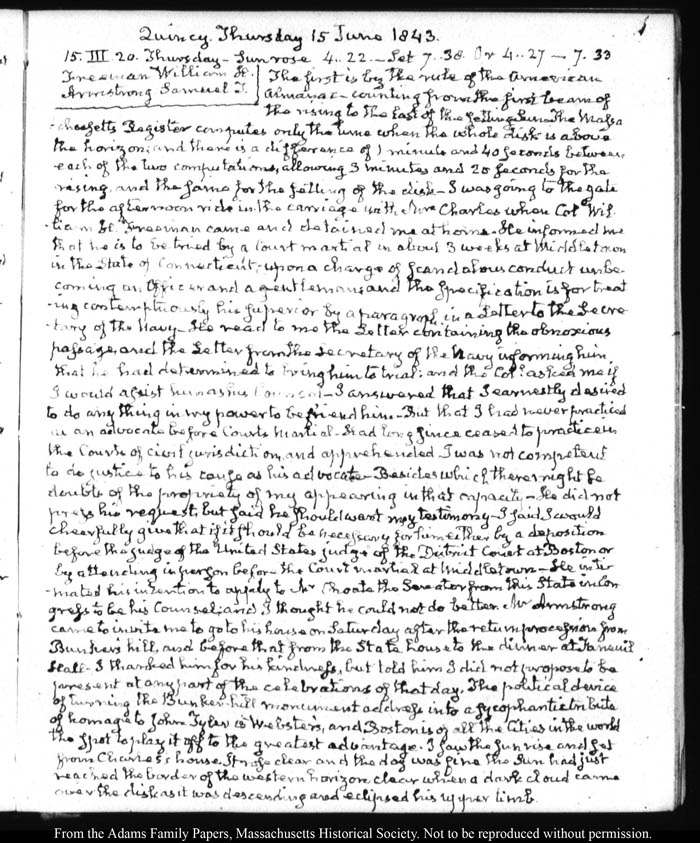 Quincy. Thursday 15 June 1843.
15. III. 20. Thursday – Sun rose 4.. 22. – Set 7. 38. Or 4.. 27 – 7. 33
Freeman William H.
Armstrong Samuel T.
The first is by the rule of the American
Almanac – counting from the first beam of
the rising to the last of the setting Sun – The Massa
-chusetts Register computes only the time when the whole disk is above
the horizon; and there is a difference of 1 minute and 40 seconds between
each of the two computations, allowing 3 minutes and 20 seconds for the
rising, and the same for the setting of the disk – I was going to the gate
for the afternoon ride in the carriage with Mrs Charles when Col. Wil-
-liam H. Freeman came and detained me at home – He informed me
that he is to be tried by a Court martial in about 3 weeks at Middletown
in the State of Connecticut; upon a charge of scandalous conduct unbe-
coming an Officer and a gentleman; and the specification is for treat
-ing contemptuously his superior by a paragraph in a Letter to the Secre-
-tary of the Navy – He read to me the Letter containing the obnoxious
passage, and the Letter from the Secretary of the Navy informing him
that he had determined to bring him to trial; and the Col. asked me if
I would assist him as his Council – I answered that I earnestly desired
to do any thing in my power to befriend him – But that I had never practiced
as an advocate before Courts Martial – Had long since ceased to practice in
the Courts of civil jurisdiction, and apprehended I was not competent
to do justice to his cause as his advocate – Besides which there might be
doubts of the propriety of my appearing in that capacity – He did not
press his request, but said he should want my testimony – I said I would
cheerfully give that if it should be necessary for him either by a deposition
before the judge of the United States judge of the District Court at Boston or
by attending in person before the Court martial at Middletown – He inti-
-mated his intention to apply to Mr Choate the Senator from this State in Con
gress to be his Counsel; and I thought he could not do better. Mr Armstrong
came to invite me to go to his house on Saturday after the return procession from
Bunker's hill, and before that from the State house to the dinner at Faneuil
Hall – I thanked him for his kindness, but told him I did not propose to be
present at any part of the celebrations of that day. The political device
of turning the Bunker-hill monument address into a sycophantic tribute
of homage to John Tyler is Webster's, and Boston is of all the Cities in the world
the spot to play it off to the greatest advantage. I saw the sun rise and set
from Charles's house. It rose clear and the day was fine the Sun had just
reached the border of the western horizon clear when a dark cloud came
over the disk as it was descending and eclipsed his upper limb.
From the Adams Family Papers, Massachusetts Historical Society. Not to be reproduced without permission.